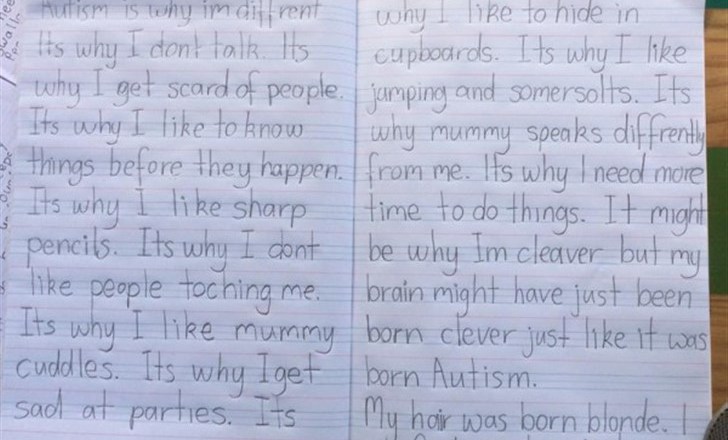 Autism is why im diffrent
Its why I dont talk. Its
why I get scard of people.
Its why I like to know
things before they happen.
Its why I like sharp
pencils. Its why I dont
like people toching me.
Its why I like mummy
cuddles. Its why I get
sad at parties. Its
why I like to hide in
cupboards. Its why I like
jumping and somersolts. Its
why mummy speaks diffrently
from me. Its why I need more
time to do things. It might
be why Im cleaver but my
brain might have just been
born clever just like it was
born Autism.
My hair was born blonde. I